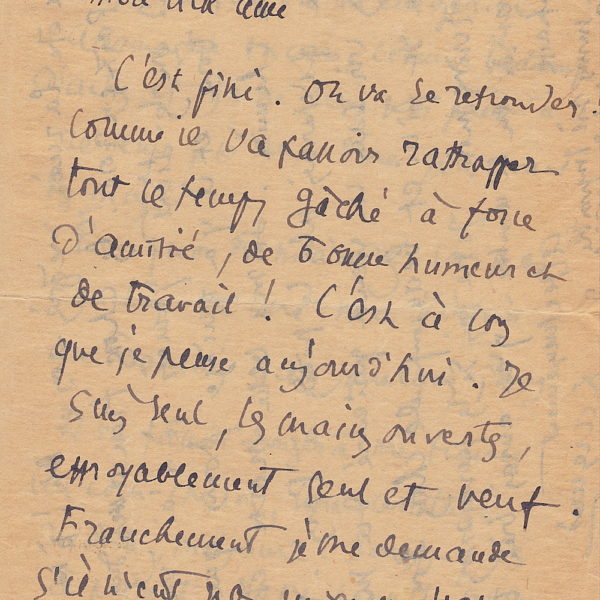 mon vieux
C'est fini. On va se retrouver!
Comme il va falloir rattrapper
tout le temps gâché à force
d'amitié, de bonne humeur et
de travail! C'est à vous
que je pense aujourd'hui. Je
suis seul, les mains ouvertes,
effroyablement seul et veuf.
Franchement je me demande
s'il n'eut pas mieux